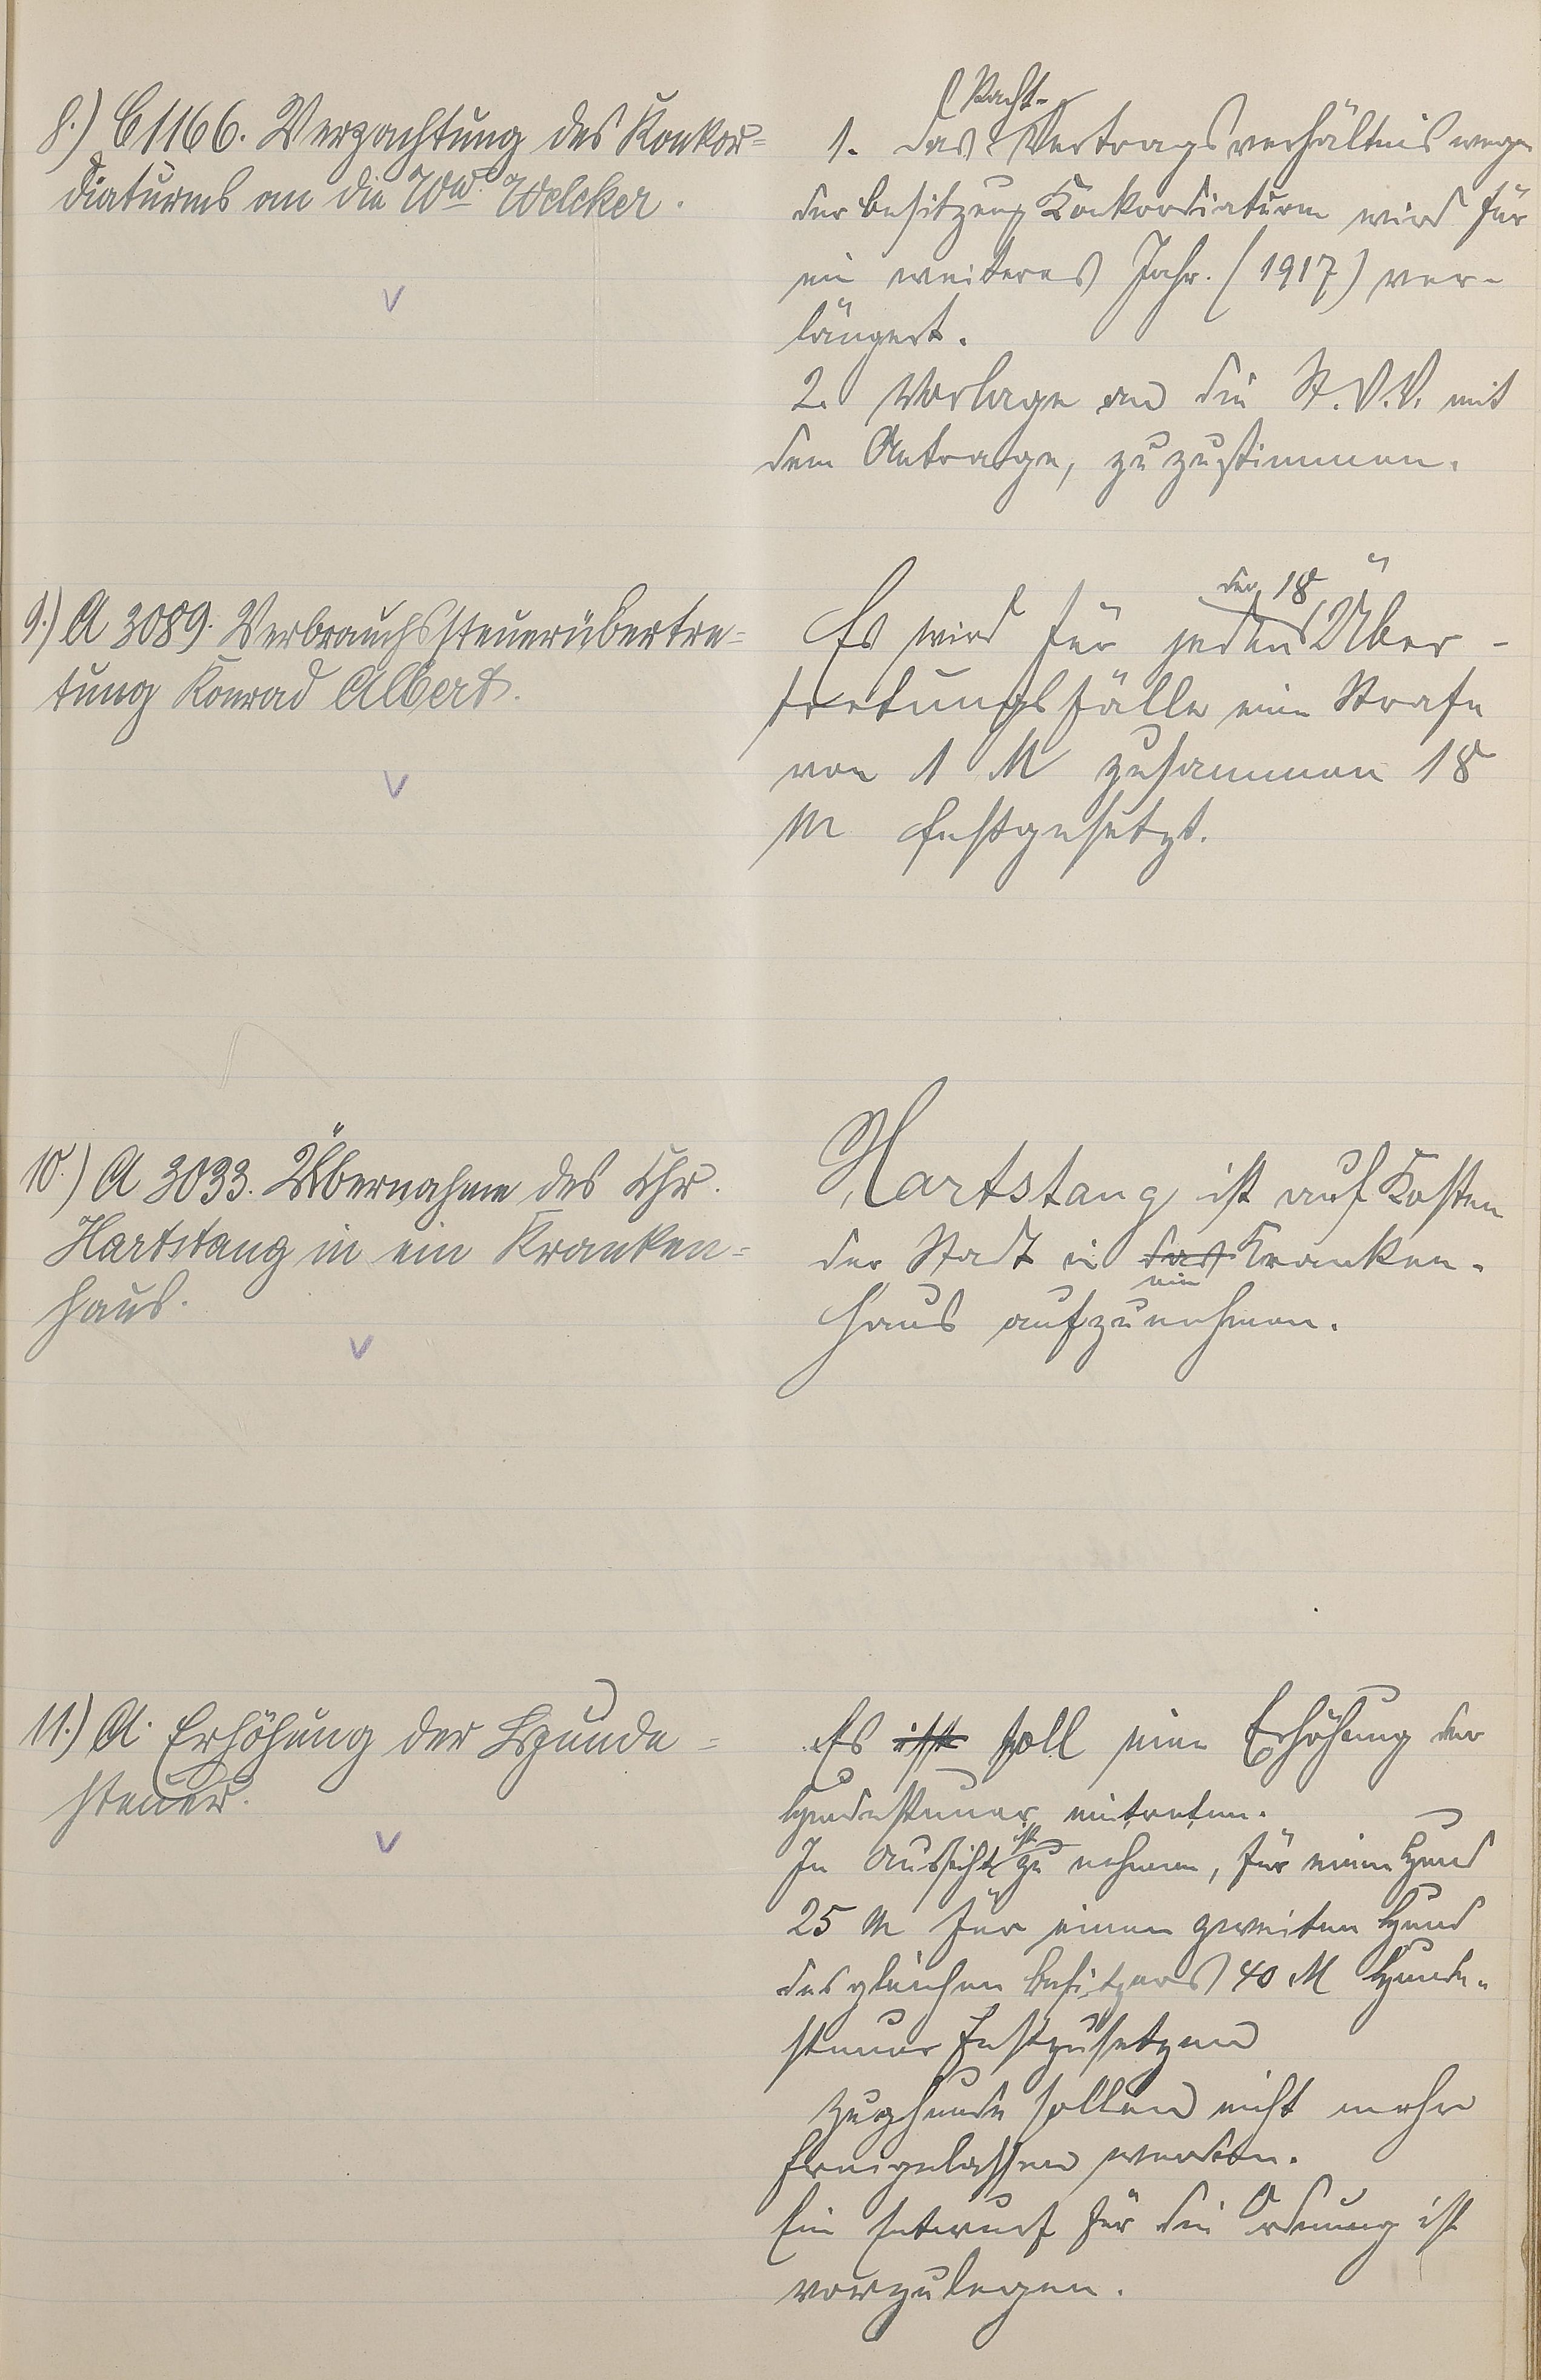 8.) C 1166. Verpachtung des Konkor=
diaturms an die Wwe. Welcker.
Pacht-
1. Das Vertragsverhältnis wegen
der Besitzung Konkordiaturm wird für
ein weiteres Jahr. (1917) ver-
längert.
2. Vorlage an die St.V.V. mit
dem Antrage, zuzustimmen.
9.) A 3089. Verbrauchssteuerübertre=
tung Konrad Albert.
der 18
Es wird für jeden Über-
tretungsfälle eine Strafe
von 1 M zusammen 18
M festgesetzt.
10.) A 3033. Übernahme des Chr.
Hartstang in ein Kranken=
haus.
Hartstang ist auf Kosten
der Stadt in das Kranken-
ein
haus aufzunehmen.
11.) A. Erhöhung der Hunde=
steuer.
Es ist soll eine Erhöhung der
Hundesteuer eintreten.
ist
In Aussicht zu nehmen, für einen Hund
25 M für einen zweiten Hund
des gleichen Besitzers 40 M Hunde-
steuer festzusetzen
Zughunde sollen nicht mehr
freigelassen werden.
Ein Entwurf für die Ordnung ist
vorzulegen.